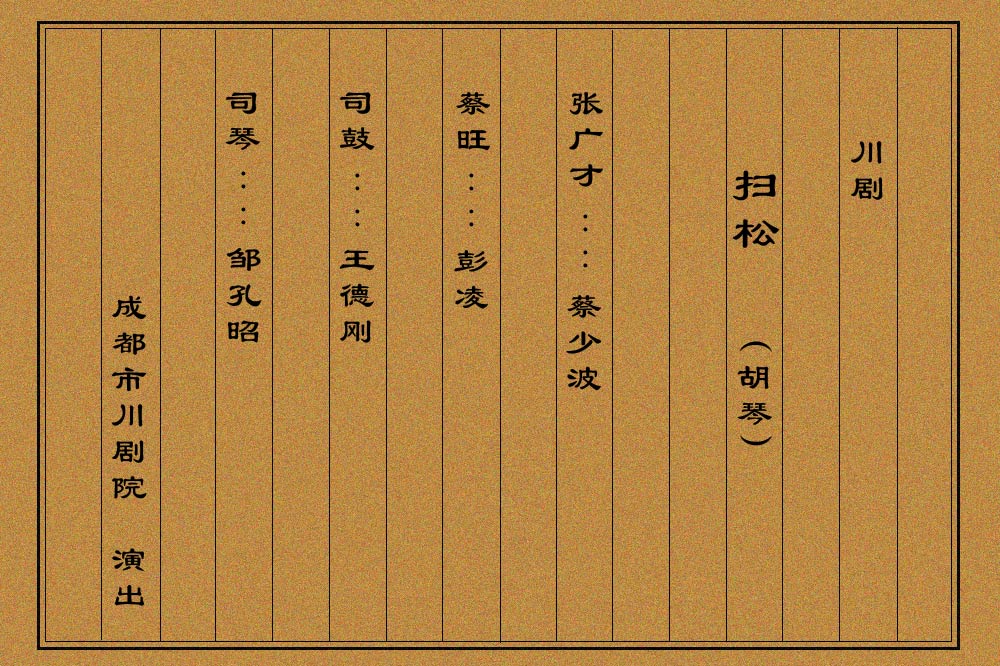 川剧
扫松 （胡琴）
张广才：：蔡少波
蔡旺：：彭凌
司鼓：：王德刚
司琴：：邹孔昭
成都市川剧院 演出